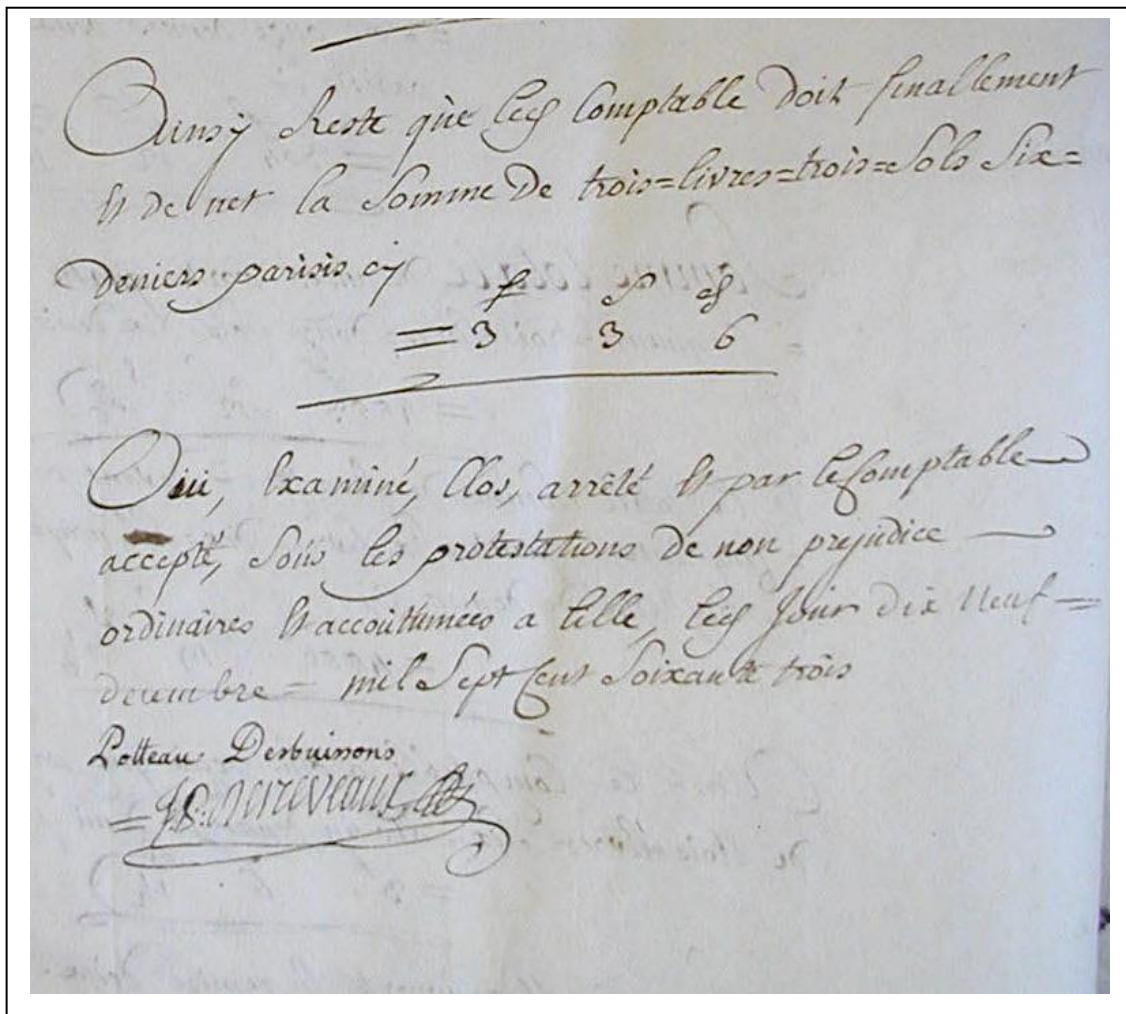 Ainsy Reste que led Comptable Doit finallement
Et de net la Somme De trois=livres=trois=Sols Six=
Deniers parisis cy
£ s d
= 3 3 6
Oui, Examiné, Clos, arrêté Et par le Comptable
accepté, Sous les protestations de non prejudice
ordinaires Et accoutumées a Lille, led Jour dix Neuf=
decembre = mil Sept Cent Soixante trois
Potteau Desbuissons